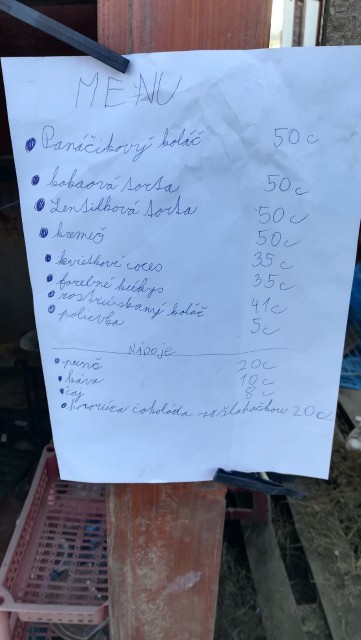 MENU
Panáčikový koláč 50c
kobaová torta 50c
Lentilková torta 50c
kremeš 50c
kvietkové coces 35c
farebné kúkys 35c
rozstrúskaný koláč 41c
polievka 5c
NÁPOJE
punč 20c
káva 10c
čaj 8c
hororúca čokoláda šľahačkou 20c